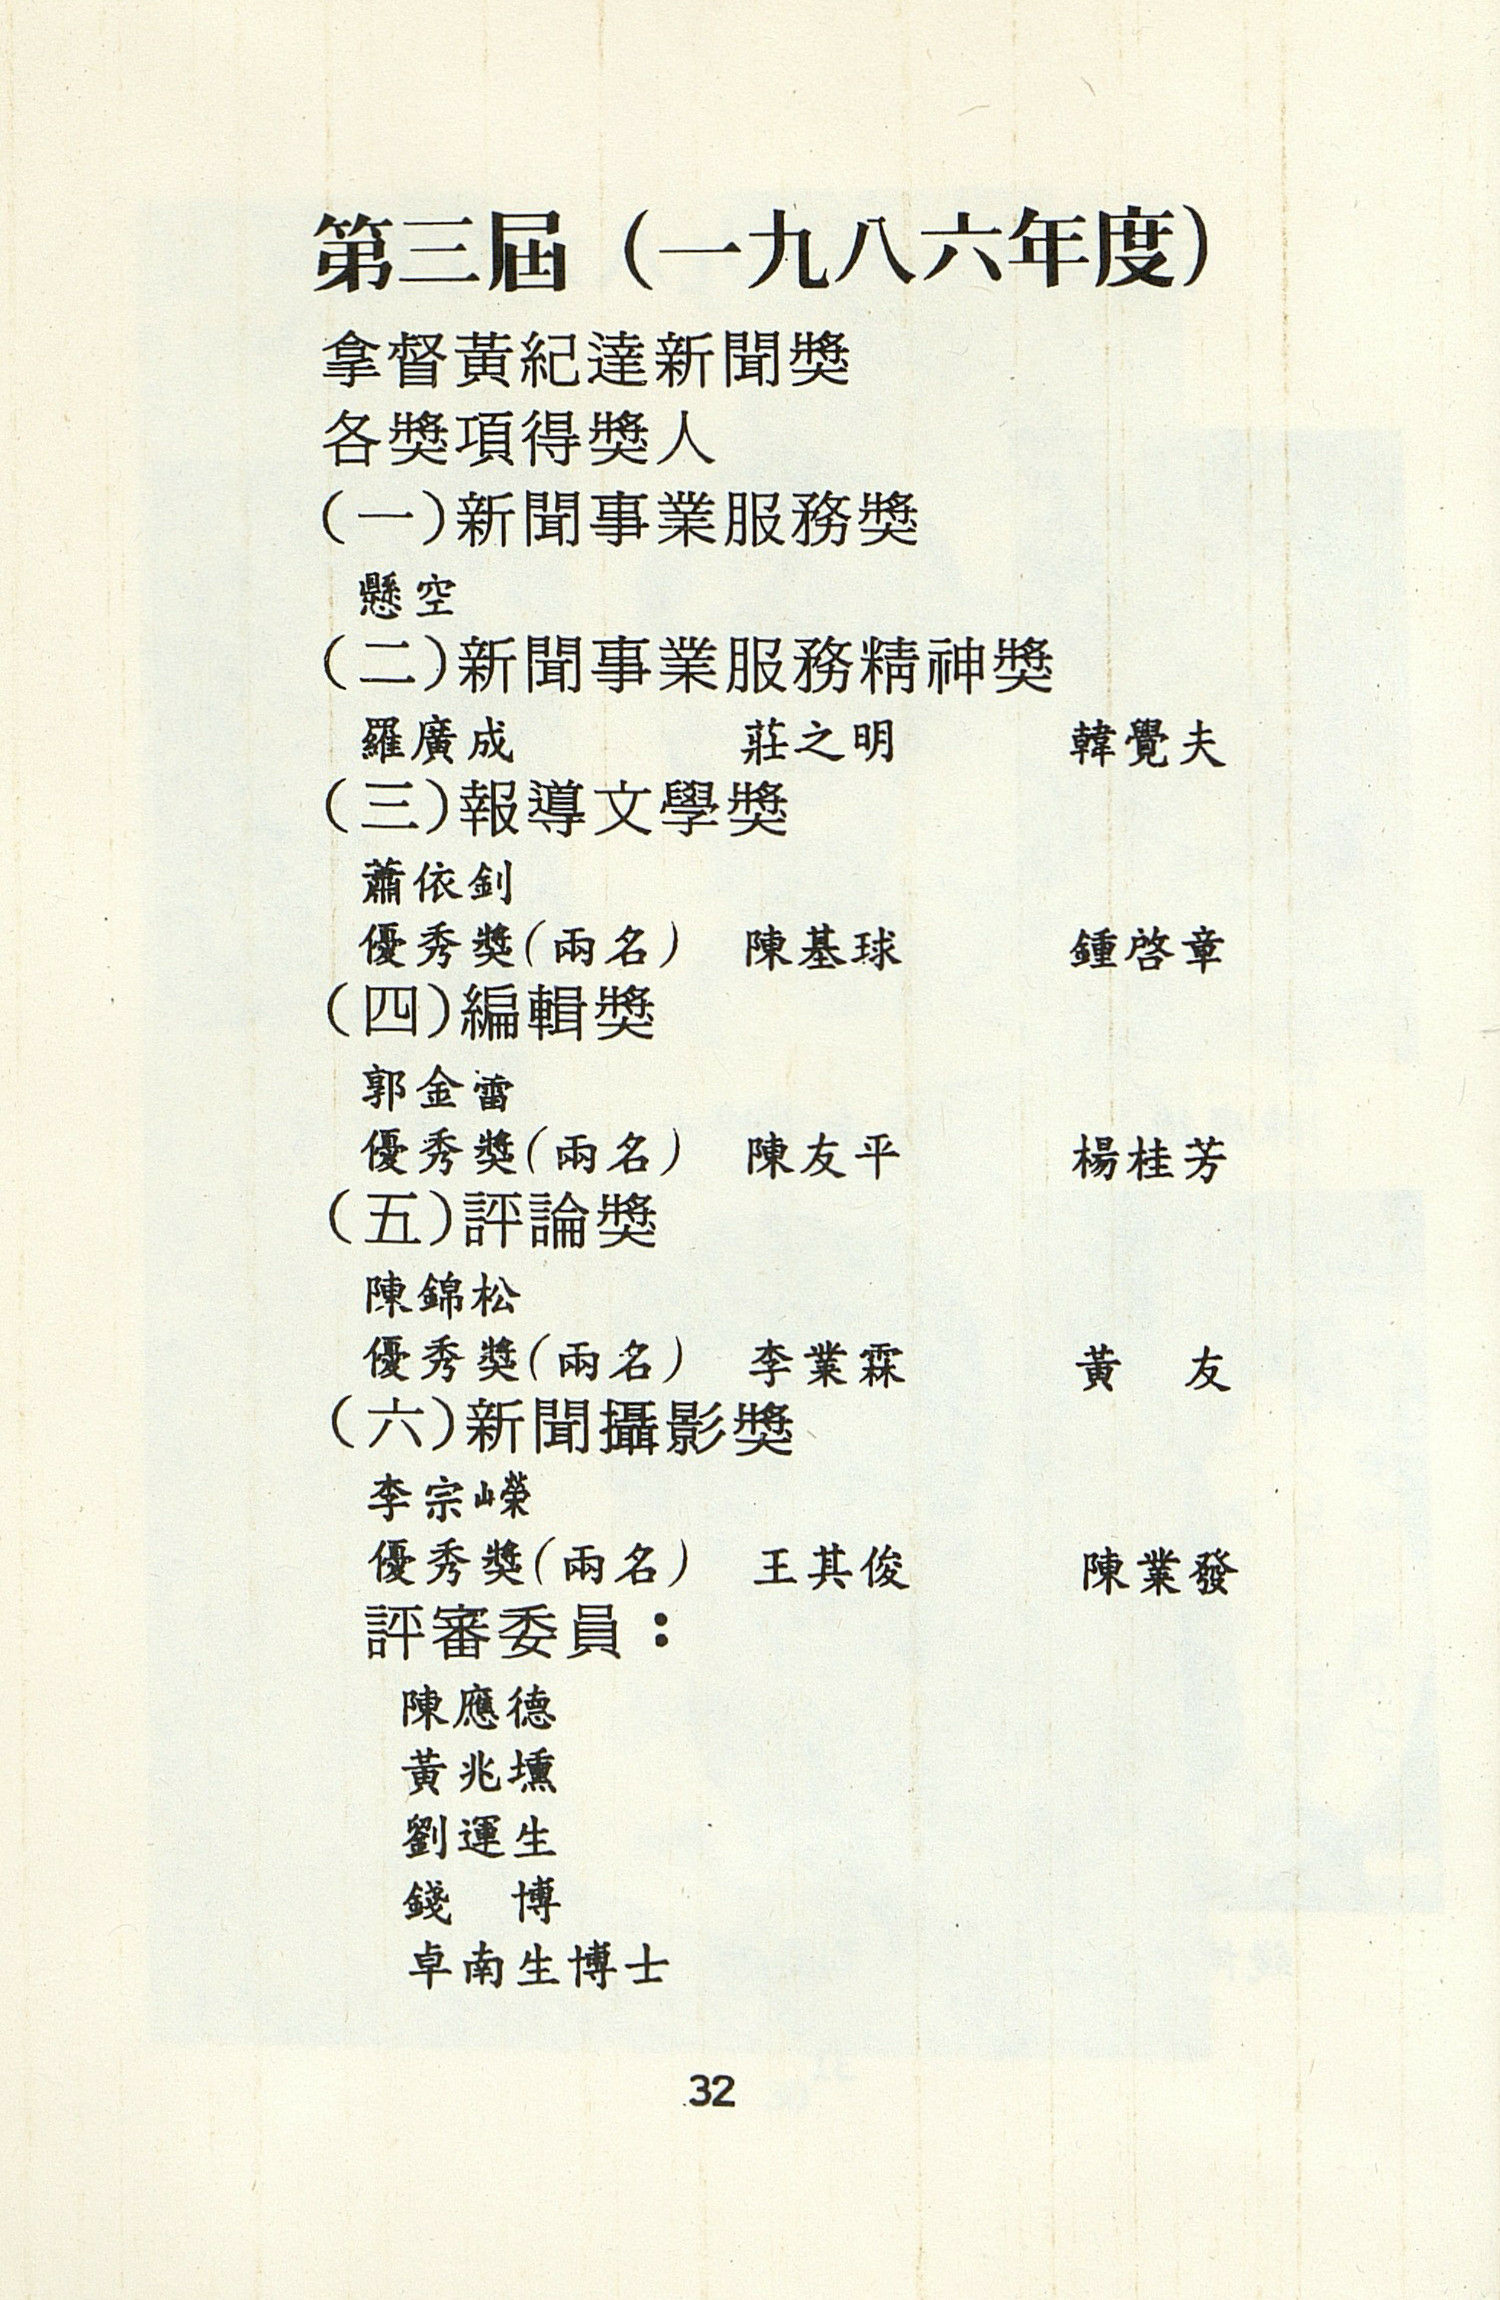 第三屆（一九八六年度）
拿督黃紀達新聞獎
各獎項得獎人
(一)新聞事業服務獎
懸空
(二)新聞事業服務精神獎
羅廣成 莊之明 韓覺夫
(三)報導文學獎
蕭依釗
優秀獎(兩名) 陳基球 鍾啓章
(四)編輯獎
郭金雷
優秀獎(兩名) 陳友平 楊桂芳
(五)評論獎
陳錦松
優秀獎(兩名) 李業霖 黃 友
(六)新聞攝影獎
李宗嶸
優秀獎(兩名) 王其俊 陳業發
評審委員：
陳應德
黃兆壎
劉運生
錢 博
卓南生博士
32